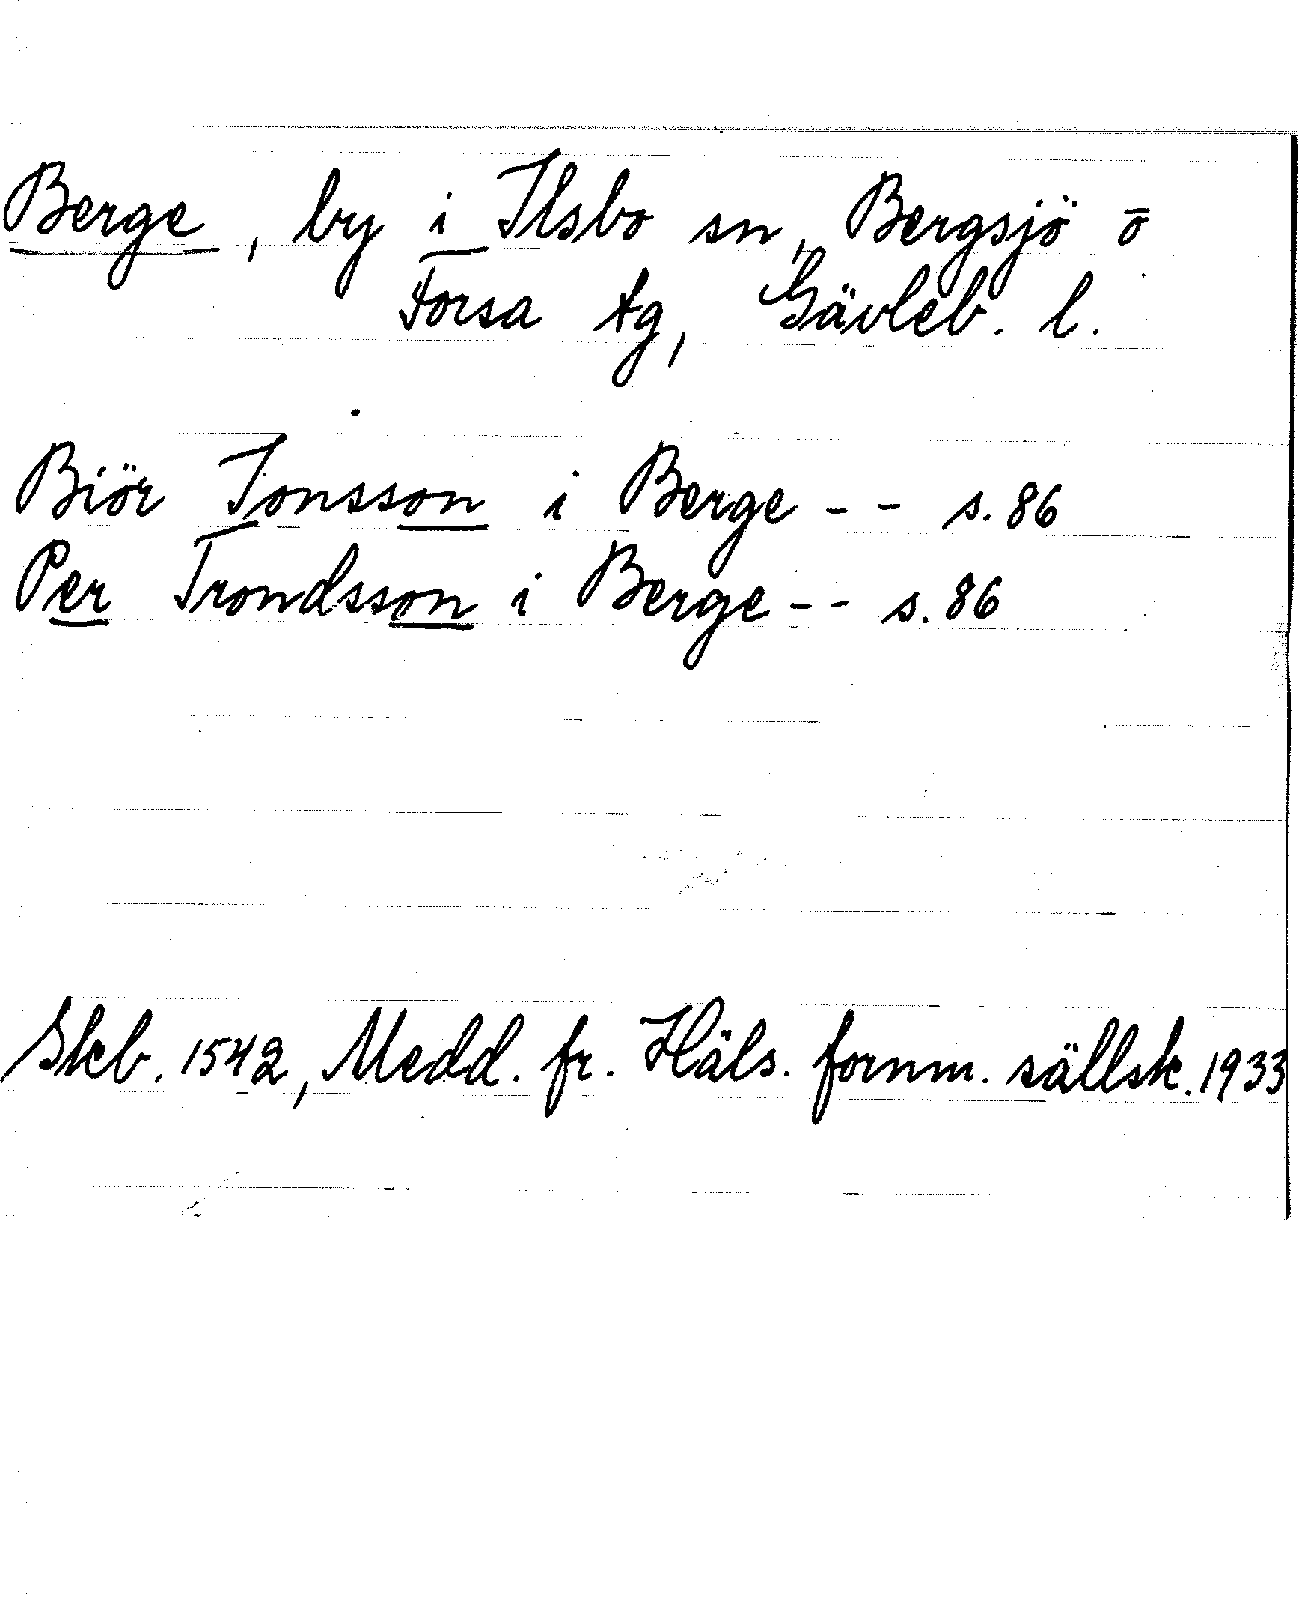 Berge, by i Ilsbo sn, Bergsjö o
Forsa tg, Gävleb. l.
Biör Jonsson i Berge - - s. 86
Per Trondsson i Berge - - s. 86
Skb. 1542, Medd. fr. Häls. fornm. sällsk. 1933